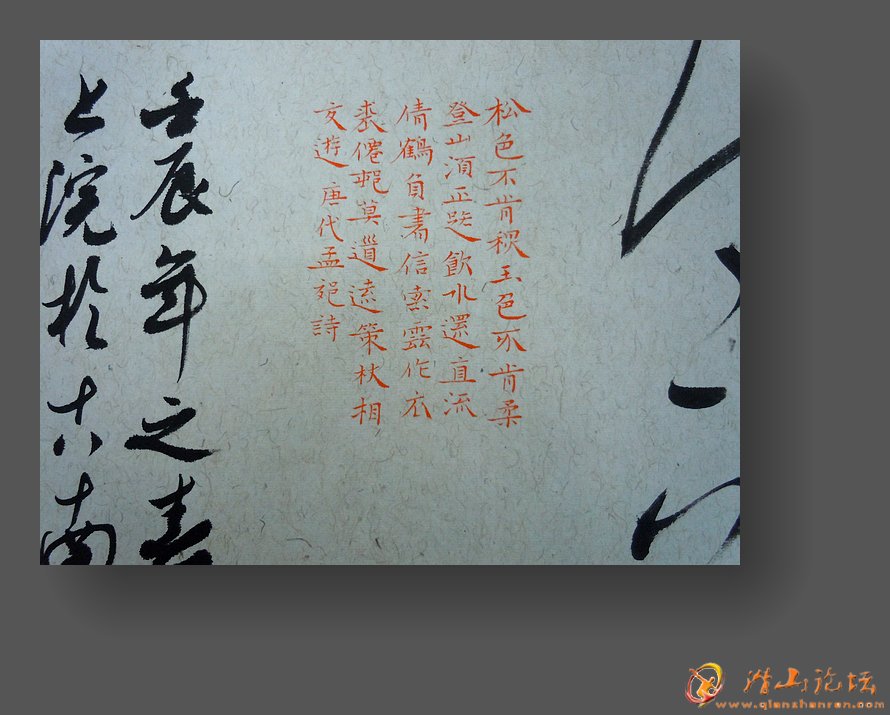 松色不肯秋玉色肯柔
登山須正路飲水還直流
倩鶴負書信索雲作衣
裘僊邨莫道遠策杖相
交遊唐代孟郊詩
壬辰年之春
上浣於南
潜山论坛
www.qianshanren.com